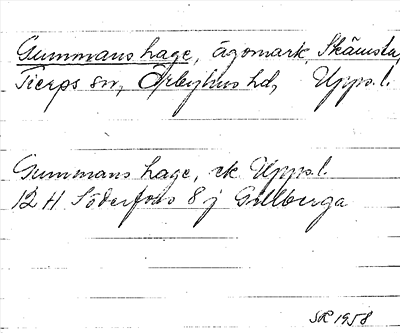 Gummans hage, ägomark, Skämsta,
Tierps sn, Örbyhus hd, Upps.l.
Gummans hage, ek Upps.l.
12 H Söderfors 8 j Gillberga
SR 1958